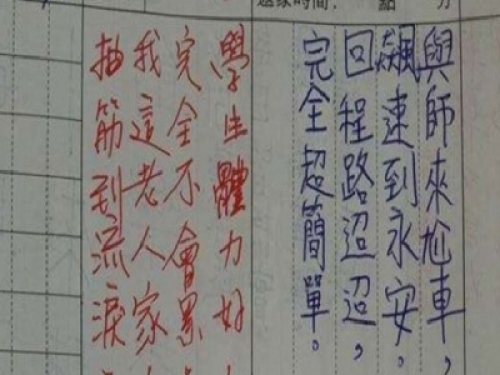 返家時間： 點 分
與師來尬車，
飆速到永安。
回程路迢迢，
完全超簡單。
學生體力好
完全不會累
我這老人家
抽筋到流淚